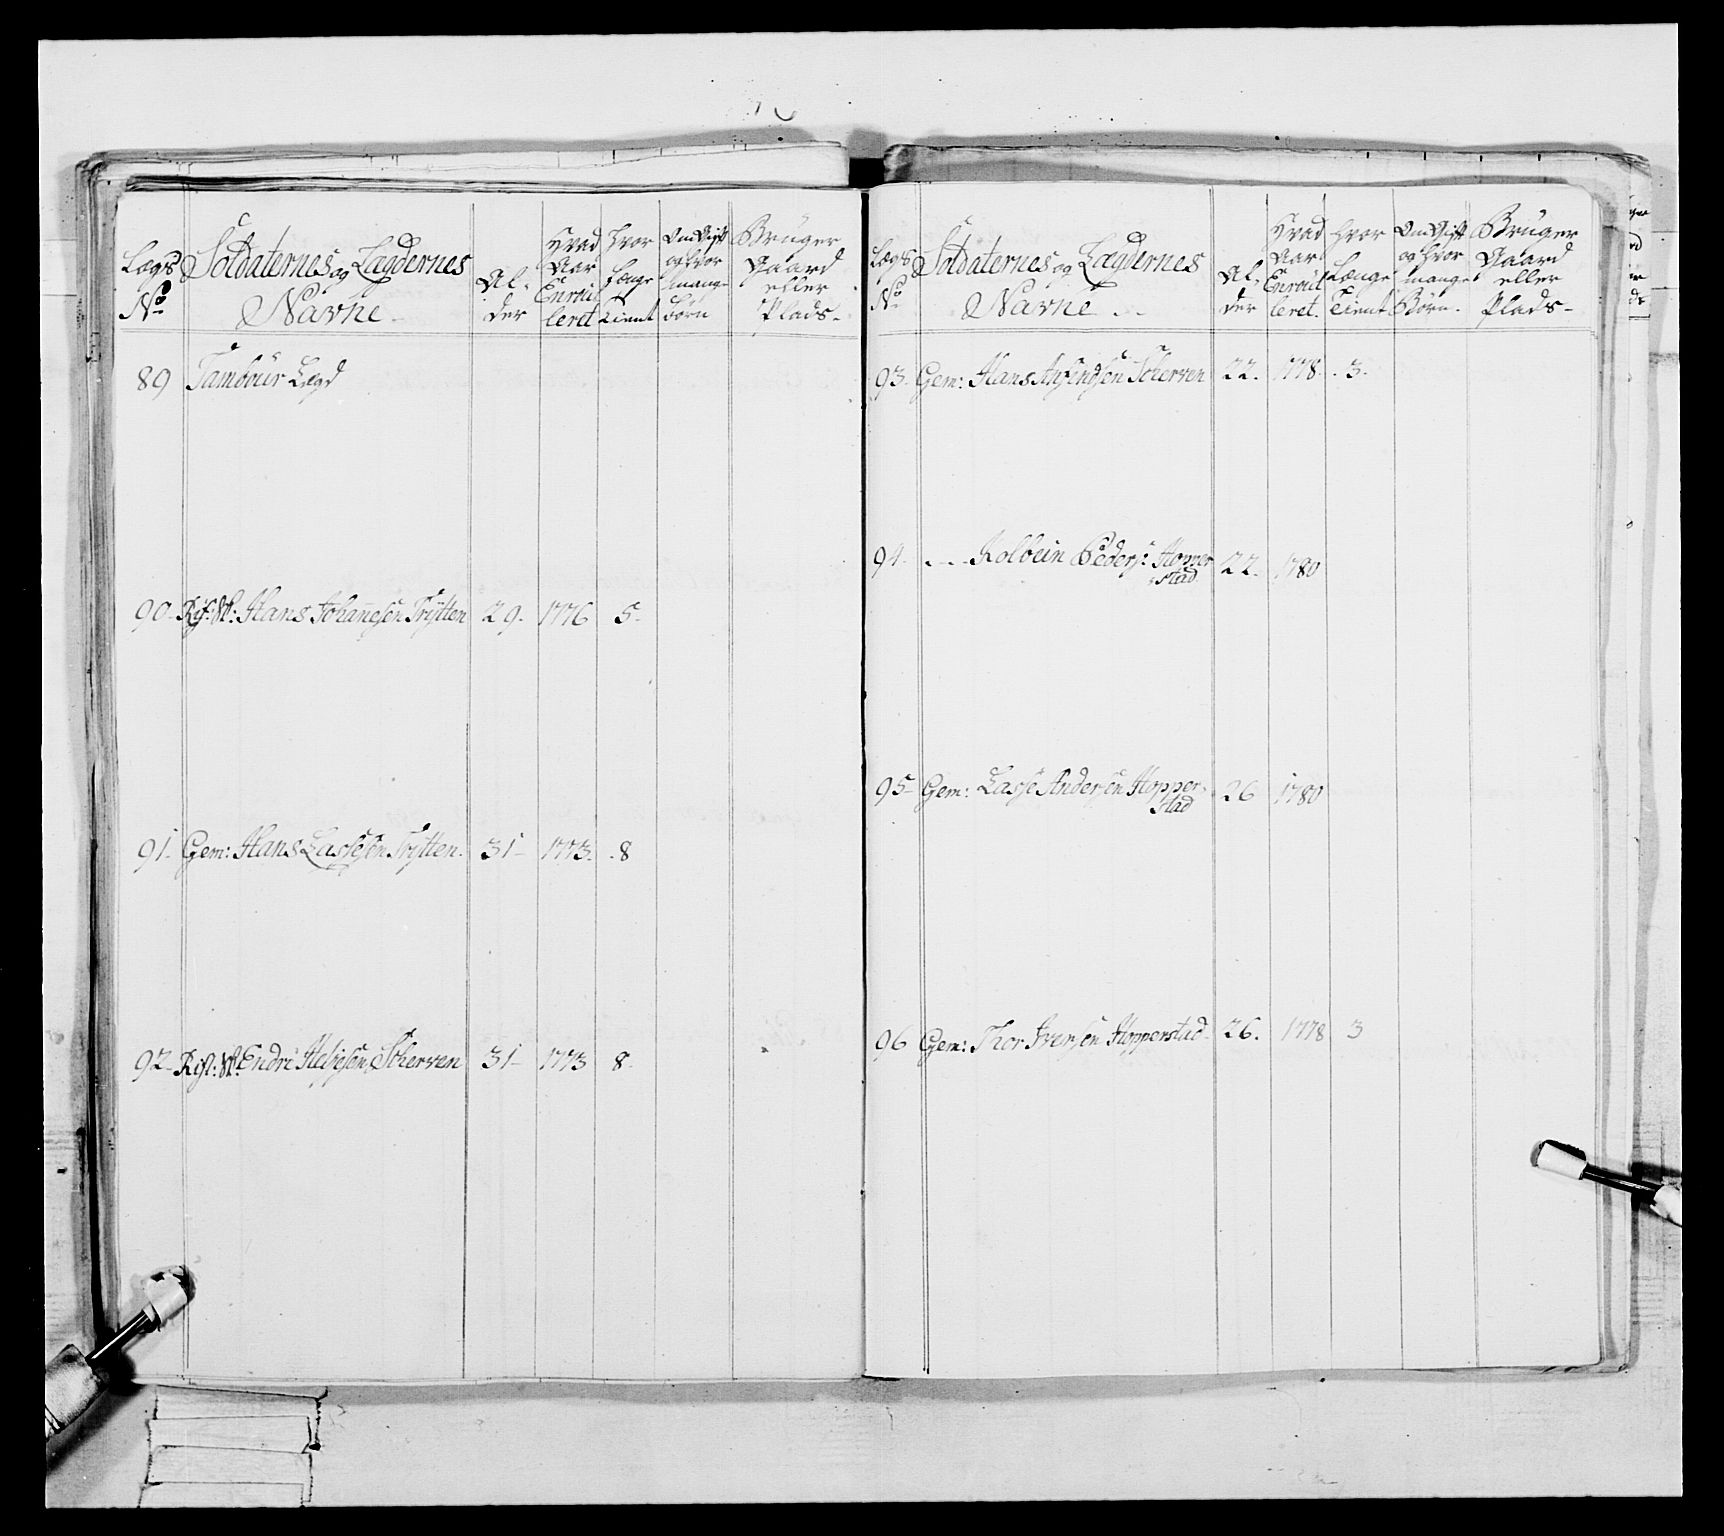 Lægs No
Soldaternes og Lægdernes Navne
Alder
Hvad Aar Enroulleret
Hvor Længe Tient
Om Gift og hvor mange Børn
Bruger Gaard eller Plads
89 Tambour Lægd
90 Hans Johannesen Trÿtten 29. 1776 5.
91. Gem: Hans Lassesen Trÿtten. 31 1773. 8
92 Endre Helgesen Scherven 31 1773 8
Lægs No
Soldaternes og Lægdernes Navne
Alder
Hvad Aar Enroulleret.
Hvor Længe Tient
Om Gift og hvor mange Børn.
Bruger Gaard eller Plads
93. Gem: Hans Anfindsen Scherven 22. 1778. 3.
94. Kolbein Peders: Hopperstad 22. 1780
95 Gem: Lasse Andersen Hopperstad 26 1780
96 Gem: Thor Iversen Hopperstad 26. 1778 3